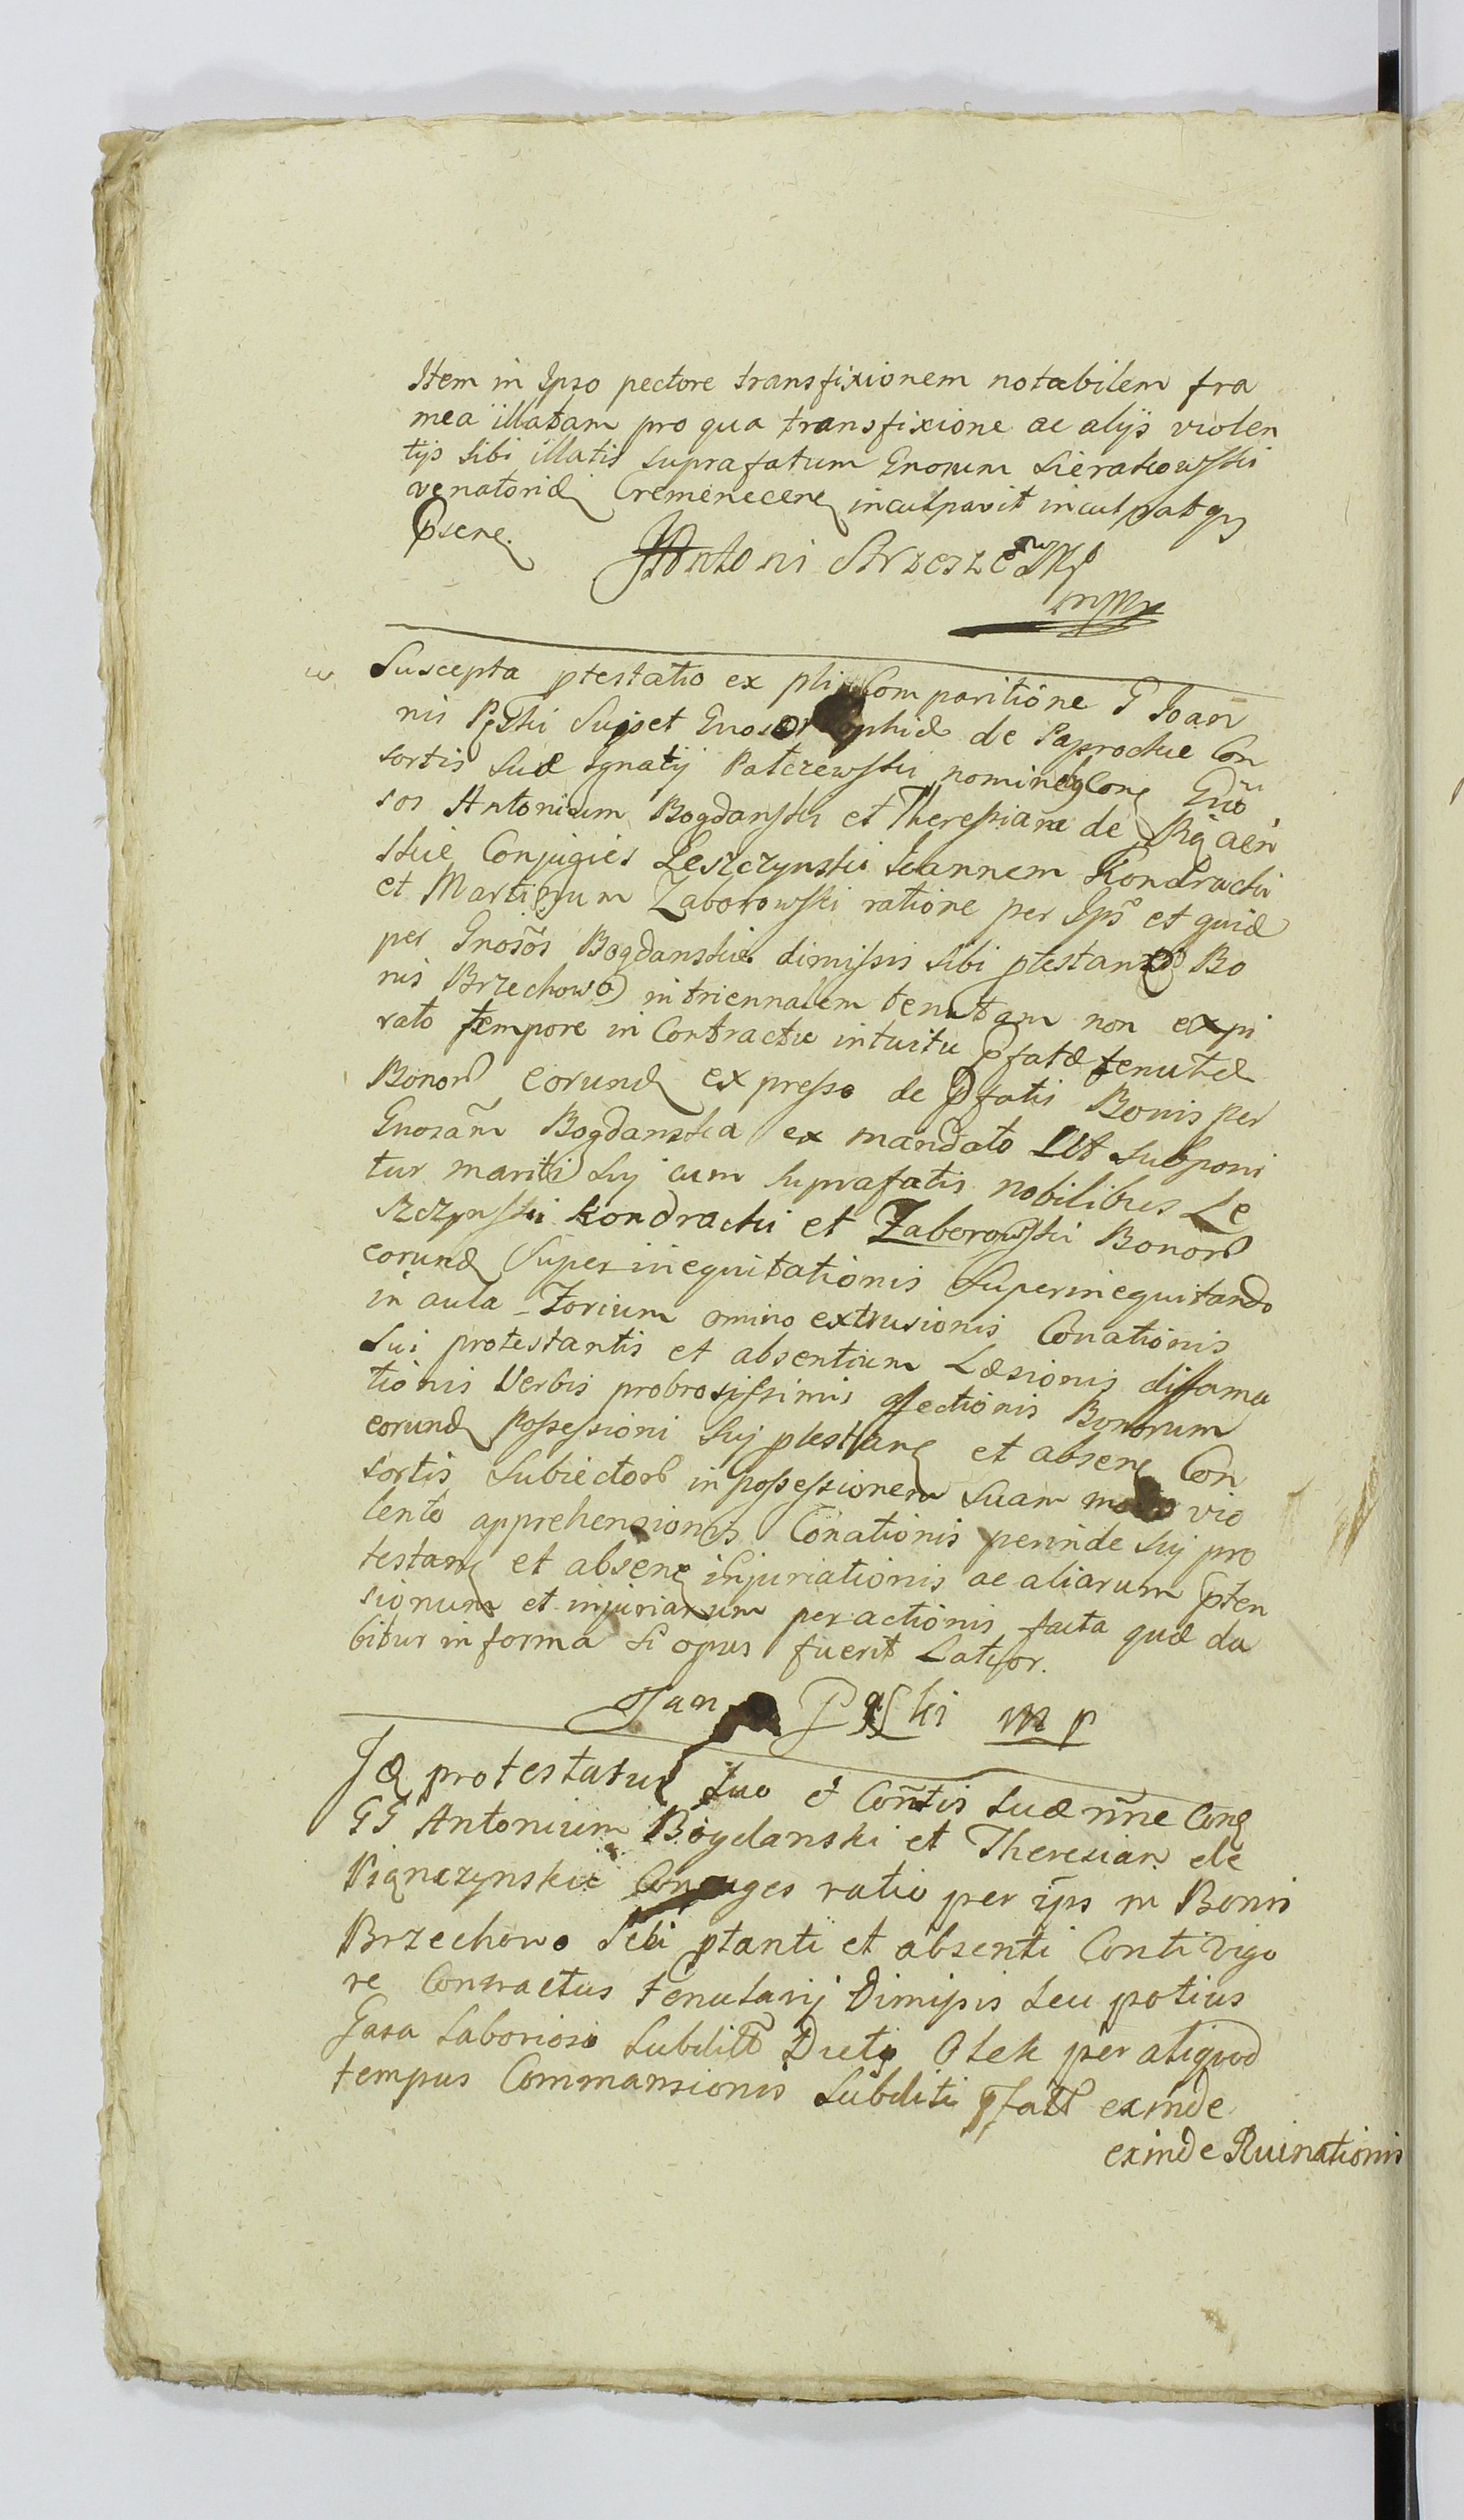 Item in Ipso pectore transfixionem notabilem fra
mea illatam pro qua transfixione ac alijs violen
tijs sibi illatis suprafatum Gnorum Sierakowski
venatoridę Cremenecenę inculpavit inculpatqȝ
Antoni Strzeszewsky
mppa
Suscepta ptestatio ex pli Comparitione G Joan
nis Pąski Sui et Gnosæ phiæ de Paprockie Con
sortis Suæ Ignatij Patczewski nomine Cong Gno
sos Antonium Bogdanski et Theresiam de
skie Conjugies Leszczynski Ioannem Kondracki
et Martinum Zaborowski ratione per Ips et quid
per Gnosos Bogdanskie dimissis sibi ptestan Bo
nis Brzechowo in triennalem tenutam non expi
rato tempore in Contractu intuitu pfatæ tenutæ
Bonor eorund expresso de pfatis Bonis per
Gnosam Bogdanska ex mandato Ut supponi
tur mariti sij cum suprafatis nobilibus Le
szczynski Kondracki et Zaborowski Bonor
eorund Super inequitationis Superinequitando
in aula Zorium omino extrusionis Conationis
Sui protestantis et absentium Læsionis diffama
tionis Verbis probrosissimis Bonorum
eorund possessioni sij ptestan et absen Con
sortis Subiector in possessionem Suam vio
lento apprehensionis Conationis perinde sij pro
testan et absen injuriationis ac aliarum pten
sionum et injuriarum peractionis facta quæ da
bitur in forma si opus fuerit Latior.
Jan Pąski mp
Id protestatur suo et Contis suæ nne Cong
GG Antonium Bogdanski et Theresian de
Conjuges ratio per ips in Bonis
Brzechowo Sibi ptanti et absenti Conti vigo
re Contractus tenutarij Dimissis seu potius
Gasa Laboriosi Subditt Dicti Olek per aliquod
tempus Commansionis Subditi pfatt exinde
exinde Ruinationis